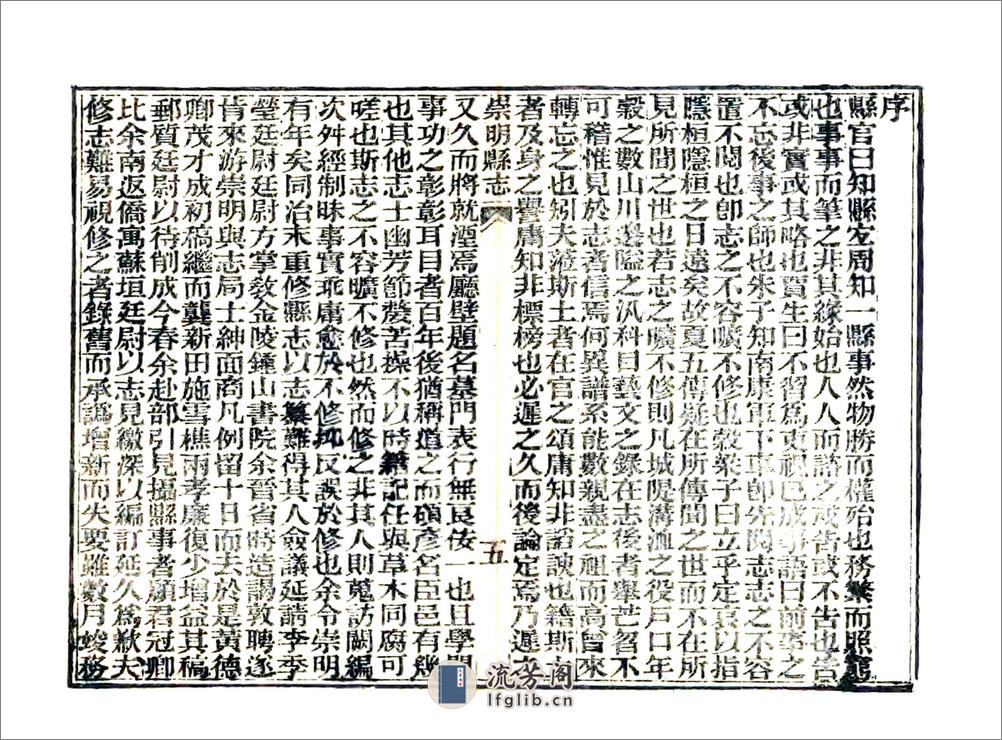 序
縣官曰知縣宜周知一縣事然物勝而權殆也務繁而照窮
也事事而筆之非其緣始也人人而諮之或告或不告也告
或非實或其略也賈生曰不習爲吏視已成事語曰前事之
不忘後事之師也朱子知南康軍下車卽先閱志志之不容
置不閱也卽志之不容曠不修也穀梁子曰立乎定哀以指
隱桓隱桓之日遠矣故夏五傳疑在所傳聞之世而不在所
見所聞之世也若志之曠不修則凡城隄溝洫之役戶口年
穀之數山川邊隘之汎科目藝文之錄在志後者舉芒芴不
可稽惟見於志者信焉何異譜系能數親盡之祖而高曾來
轉忘之也矧夫蒞斯土者在官之頌庸知非諂諛也籍斯土
者及身之譽庸知非標榜也必遲之久而後論定焉乃遲之
崇明縣志
五
又久而將就湮焉廳壁題名墓門表行無良法一也且學問
事功之彰彰耳目者百年後猶稱道之而碩彥名臣邑有幾
也其他志士幽芳節嫠苦操不以時籍記任與草木同腐可
嗟也斯志之不容曠不修也然而修之非其人則蒐訪闕編
次舛經制昧事實乖庸愈於不修抑反誤於修也余令崇明
有年矣同治末重修縣志以志纂難得其人僉議延請李季
瑩廷尉廷尉方掌敎金陵鍾山書院余晉省時造謁敦聘遂
肯來游崇明與志局士紳面商凡例留十日而去於是黃德
卿茂才成初稿繼而龔新田施雪樵兩孝廉復少增益其稿
郵質廷尉以待削成今春余赴部引見攝縣事者顧君冠卿
比余南返僑寓蘇垣廷尉以志見繳深以編訂延久爲歉夫
修志難易視修之者錄舊而承譌增新而失要雖數月竣務
流芳阁
lfglib.cn